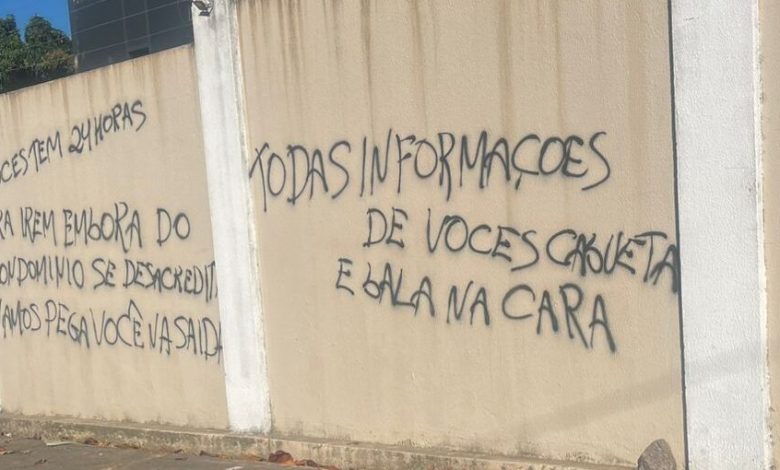 VOCES TEM 24 HORAS
PRA IREM EMBORA DO
CONDOMINIO SE DESACREDITA
VAMOS PEGA VOCÊ NA SAIDA
TODAS INFORMAÇOES
DE VOCES CABUETA
E BALA NA CARA